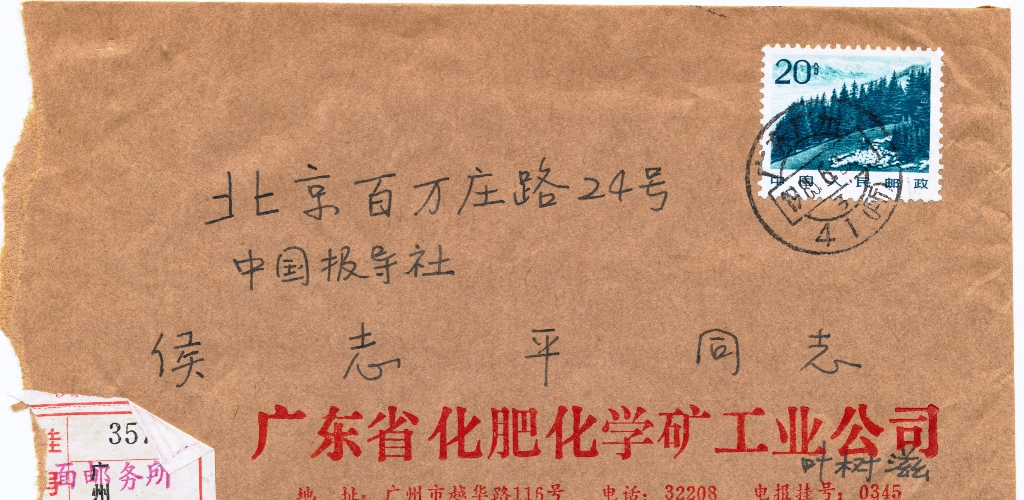 20分
中国人民邮政
广州
41
北京百万庄路24号
中国报导社
侯志平同志
广东省化肥化学矿工业公司
叶树滋
挂号
357
面邮务所
广州
地 址：广州市越华路116号 电话：32208 电报挂号：0345